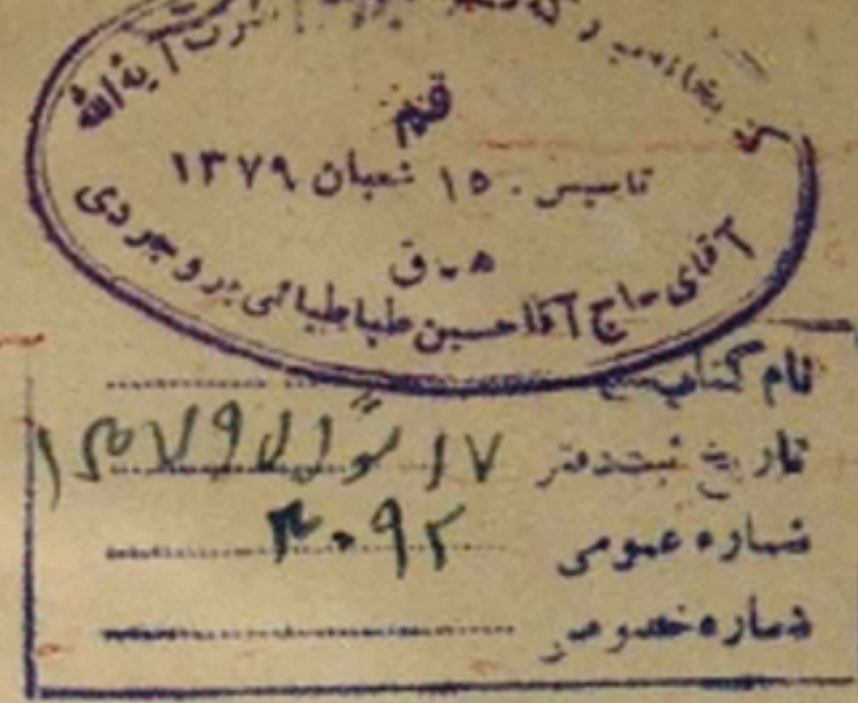 آیة الله
قم
تاسیس ۱۵ شعبان ۱۳۷۹
ه - ق
آقای حاج آقا حسین طباطبائی بروجردی
نام کتاب
تاریخ ثبت دفتر ۱۷
شماره عمومی ۳۰۹۲
شماره خصوصی